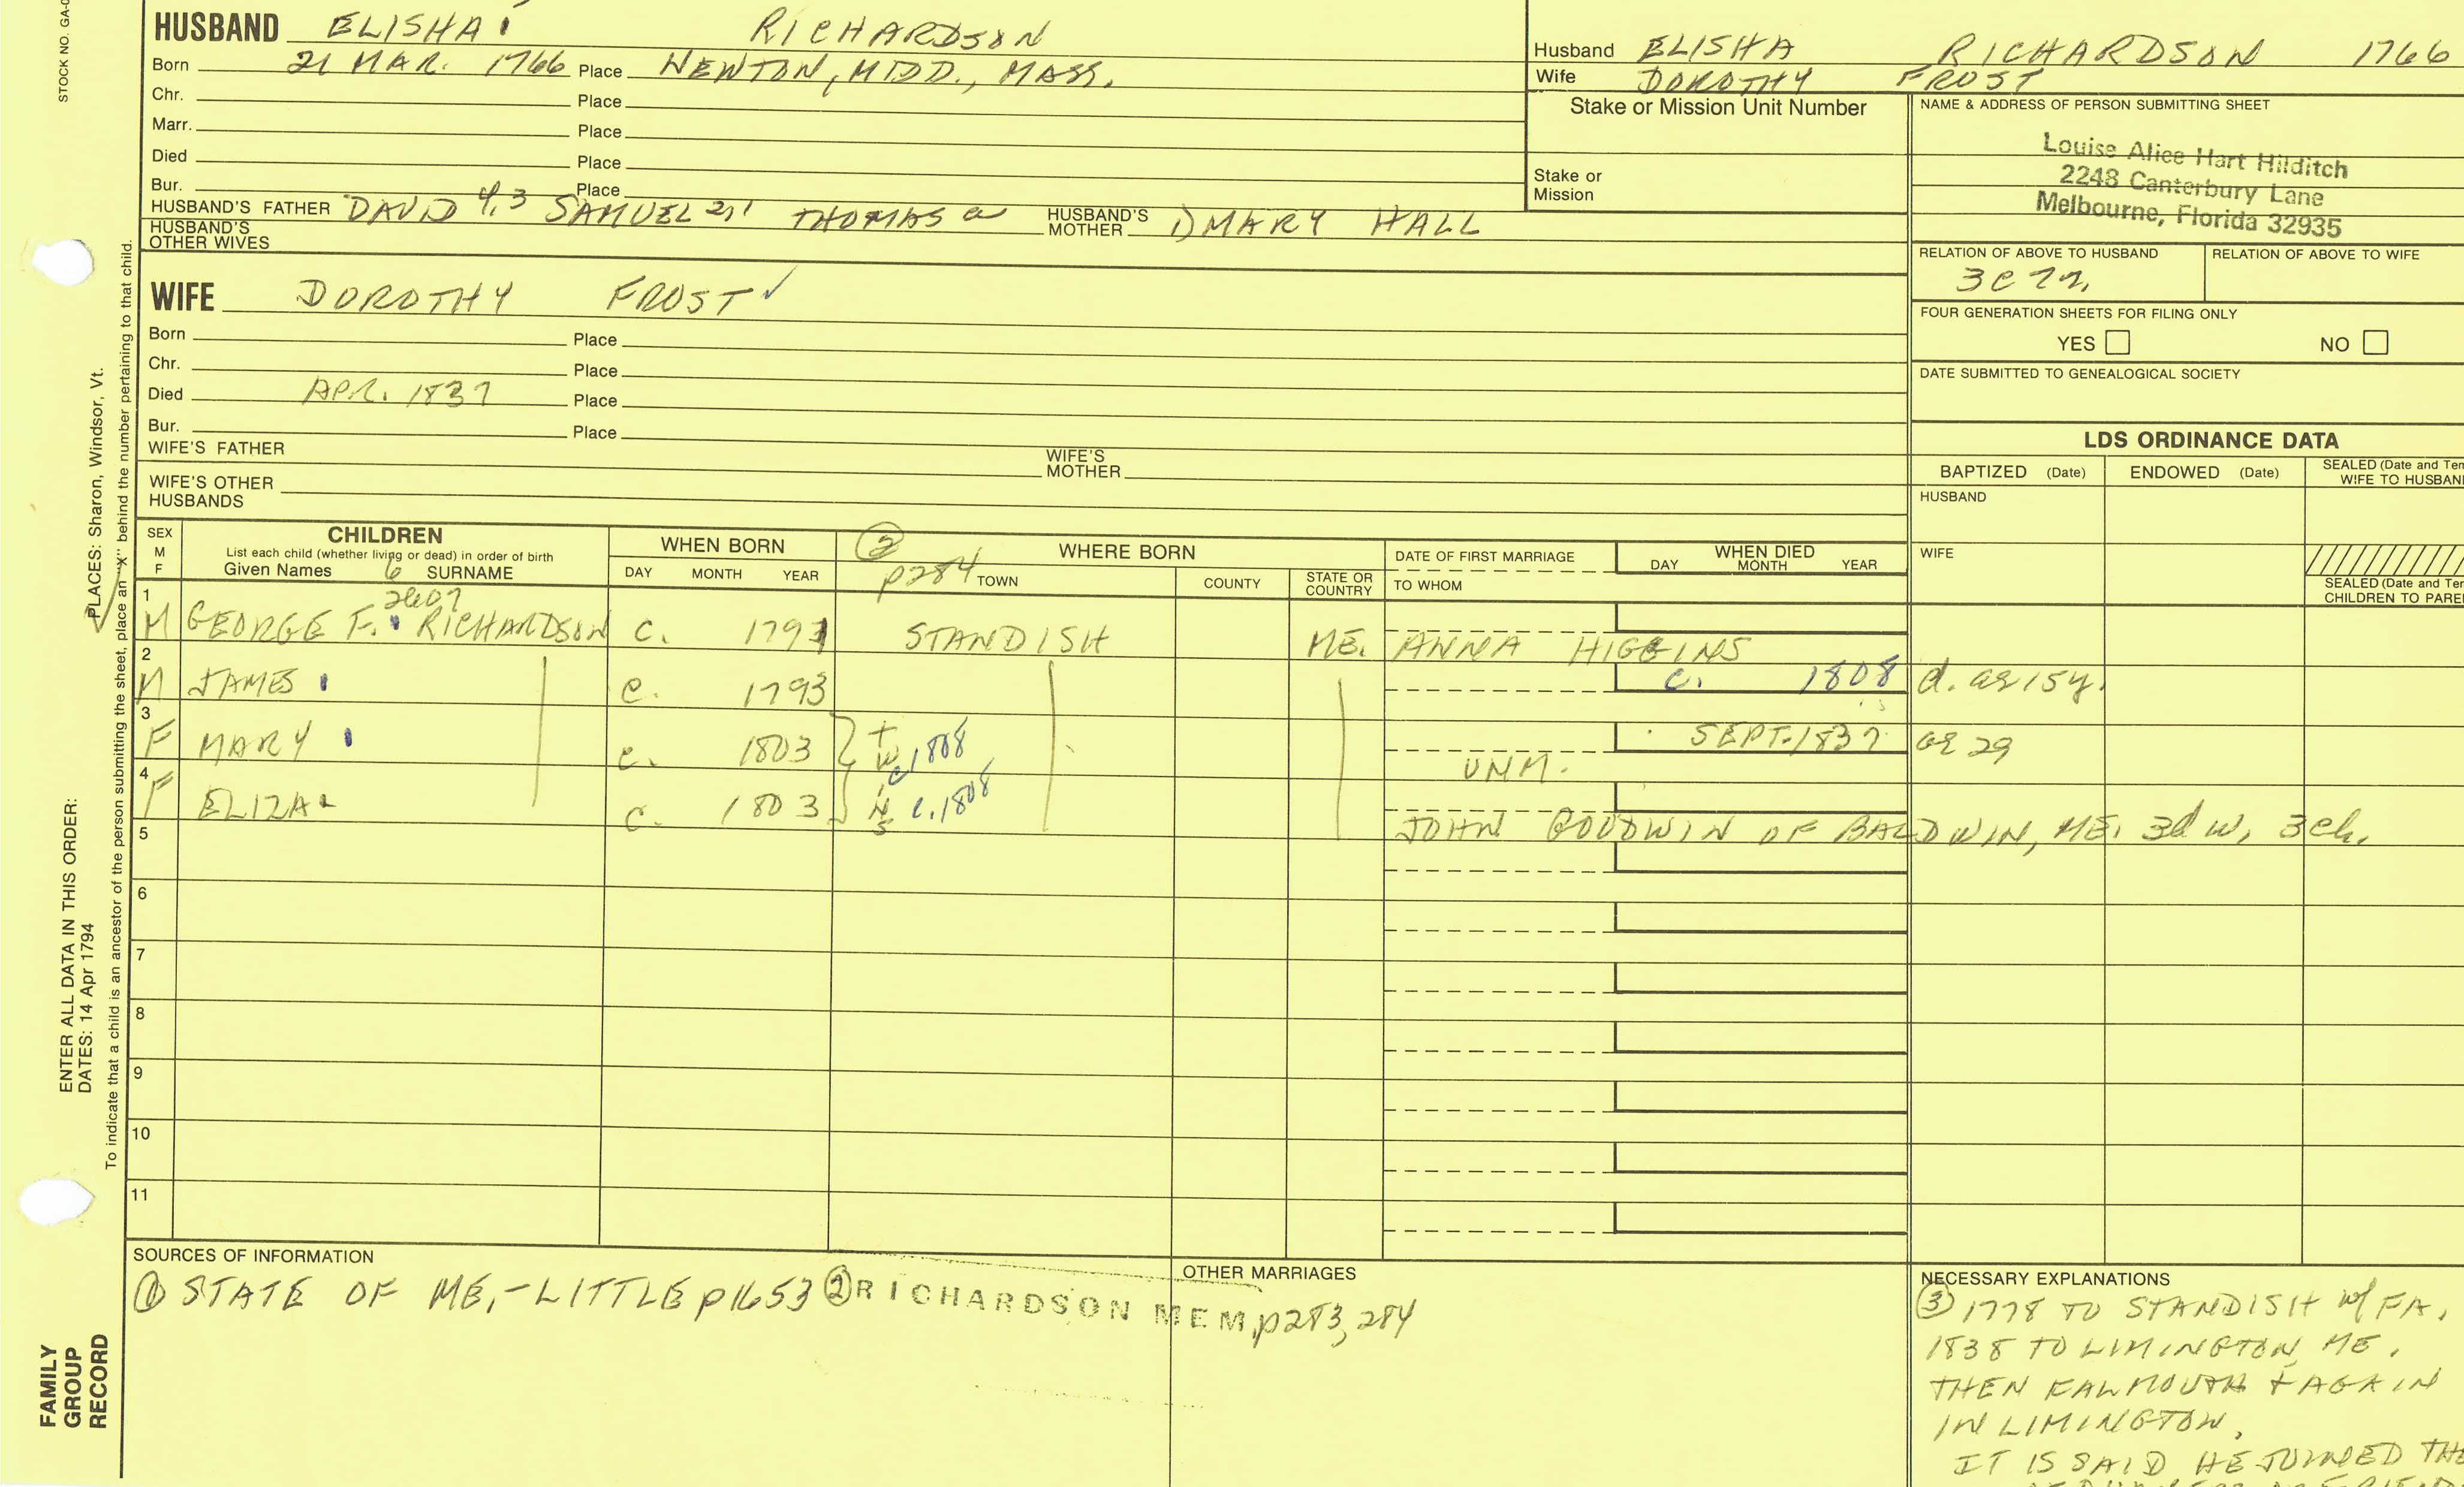 STOCK NO. GA-0
HUSBAND ELISHA RICHARDSON
Born 21 MAR. 1766 Place NEWTON, MIDD., MASS.
Chr. Place
Marr. Place
Died Place
Bur. Place
HUSBAND'S FATHER DAVID 4,3 SAMUEL 2,1 THOMAS a HUSBAND'S MOTHER 1) MARY HALL
HUSBAND'S OTHER WIVES
WIFE DOROTHY FROST ✓
Born Place
Chr. Place
Died APR. 1837 Place
Bur. Place
WIFE'S FATHER WIFE'S MOTHER
WIFE'S OTHER HUSBANDS
Husband ELISHA RICHARDSON 1766
Wife DOROTHY FROST
Stake or Mission Unit Number
Stake or Mission
NAME & ADDRESS OF PERSON SUBMITTING SHEET
Louise Alice Hart Hilditch
2248 Canterbury Lane
Melbourne, Florida 32935
RELATION OF ABOVE TO HUSBAND RELATION OF ABOVE TO WIFE
FOUR GENERATION SHEETS FOR FILING ONLY
YES NO
DATE SUBMITTED TO GENEALOGICAL SOCIETY
LDS ORDINANCE DATA
BAPTIZED (Date) ENDOWED (Date) SEALED (Date and Tem
WIFE TO HUSBAN
HUSBAND
WIFE
SEALED (Date and Tem
CHILDREN TO PARE
SEX M F
CHILDREN
List each child (whether living or dead) in order of birth
Given Names 6 SURNAME
WHEN BORN
DAY MONTH YEAR
② p284
WHERE BORN
TOWN COUNTY STATE OR COUNTRY
DATE OF FIRST MARRIAGE
TO WHOM
WHEN DIED
DAY MONTH YEAR
2607
1 M GEORGE F. RICHARDSON c. 1791 STANDISH ME. ANNA HIGGINS
2 M JAMES c. 1793 c. 1808 d. ae 15y.
3 F MARY c. 1803 c1808 SEPT. 1837 ae 29
UNM.
4 F ELIZA c. 1803 c.1808
JOHN GOODWIN OF BALDWIN, ME. 3d w, 3ch.
5
6
7
8
9
10
11
SOURCES OF INFORMATION
① STATE OF ME.-LITTLE p1653 ② RICHARDSON MEM. p283, 284
OTHER MARRIAGES
NECESSARY EXPLANATIONS
③ 1778 TO STANDISH w/ FA.
1838 TO LIMINGTON, ME.
THEN FALMOUTH & AGAIN
IN LIMINGTON.
IT IS SAID HE JOINED THE
PLACES: Sharon, Windsor, Vt.
ENTER ALL DATA IN THIS ORDER:
DATES: 14 Apr 1794
To indicate that a child is an ancestor of the person submitting the sheet, place an "X" behind the number pertaining to that child.
FAMILY
GROUP
RECORD